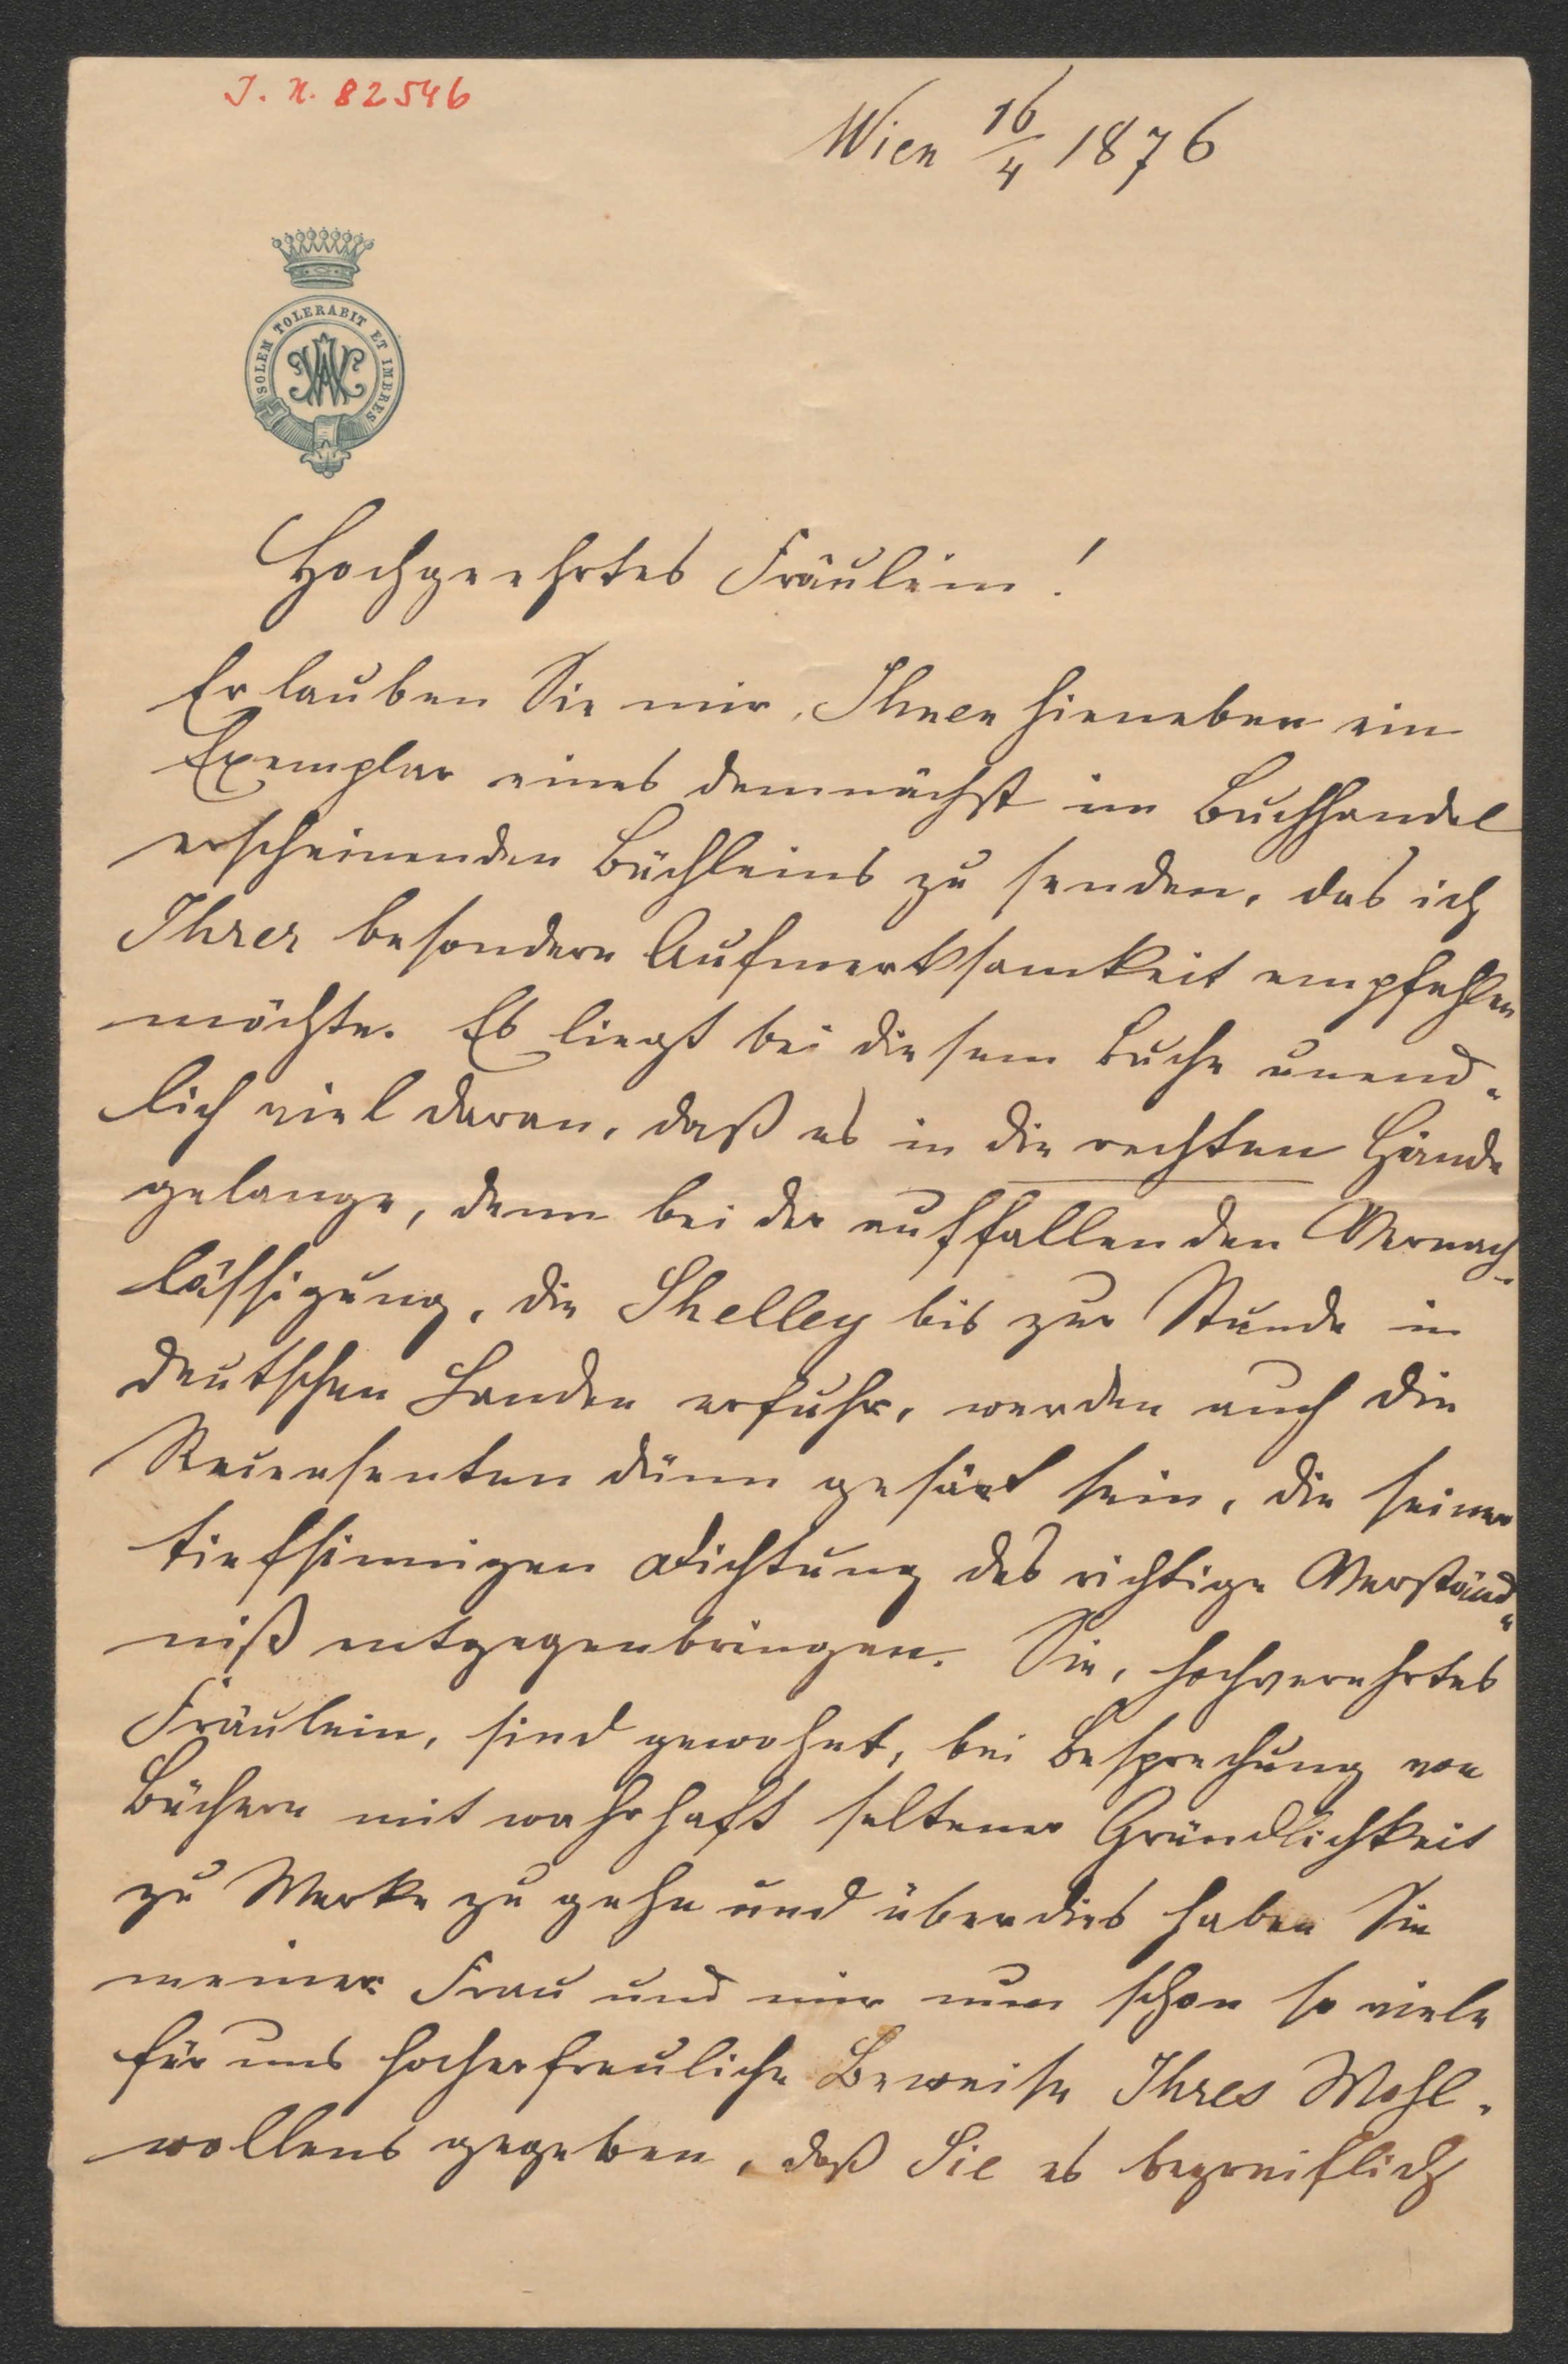 J. N. 82546
Wien 16/4 1876
SOLEM TOLERABIT ET IMBRES
Hochgeehrtes Fräulein!
Erlauben Sie mir, Ihnen hieneben ein
Exemplar eines demnächst im Buchhandel
erscheinenden Büchleins zu senden, das ich
Ihrer besondern Aufmerksamkeit empfehlen
möchte. Es liegt bei diesem Buche unend-
lich viel daran, daß es in die rechten Hände
gelange, denn bei der auffallenden Vernach-
lässigung, die Shelley bis zur Stunde in
deutschen Landen erfuhr, werden auch die
Recensenten dünn gesäet sein, die seiner
tiefsinnigen Dichtung das richtige Verständ-
niß entgegenbringen. Sie, hochverehrtes
Fräulein, sind gewohnt, bei Besprechung von
Büchern mit wahrhaft seltener Gründlichkeit
zu Werke zu gehn und überdies haben Sie
meiner Frau und mir nun schon so viele
für uns hocherfreuliche Beweise Ihres Wohl-
wollens gegeben, daß Sie es begreiflich